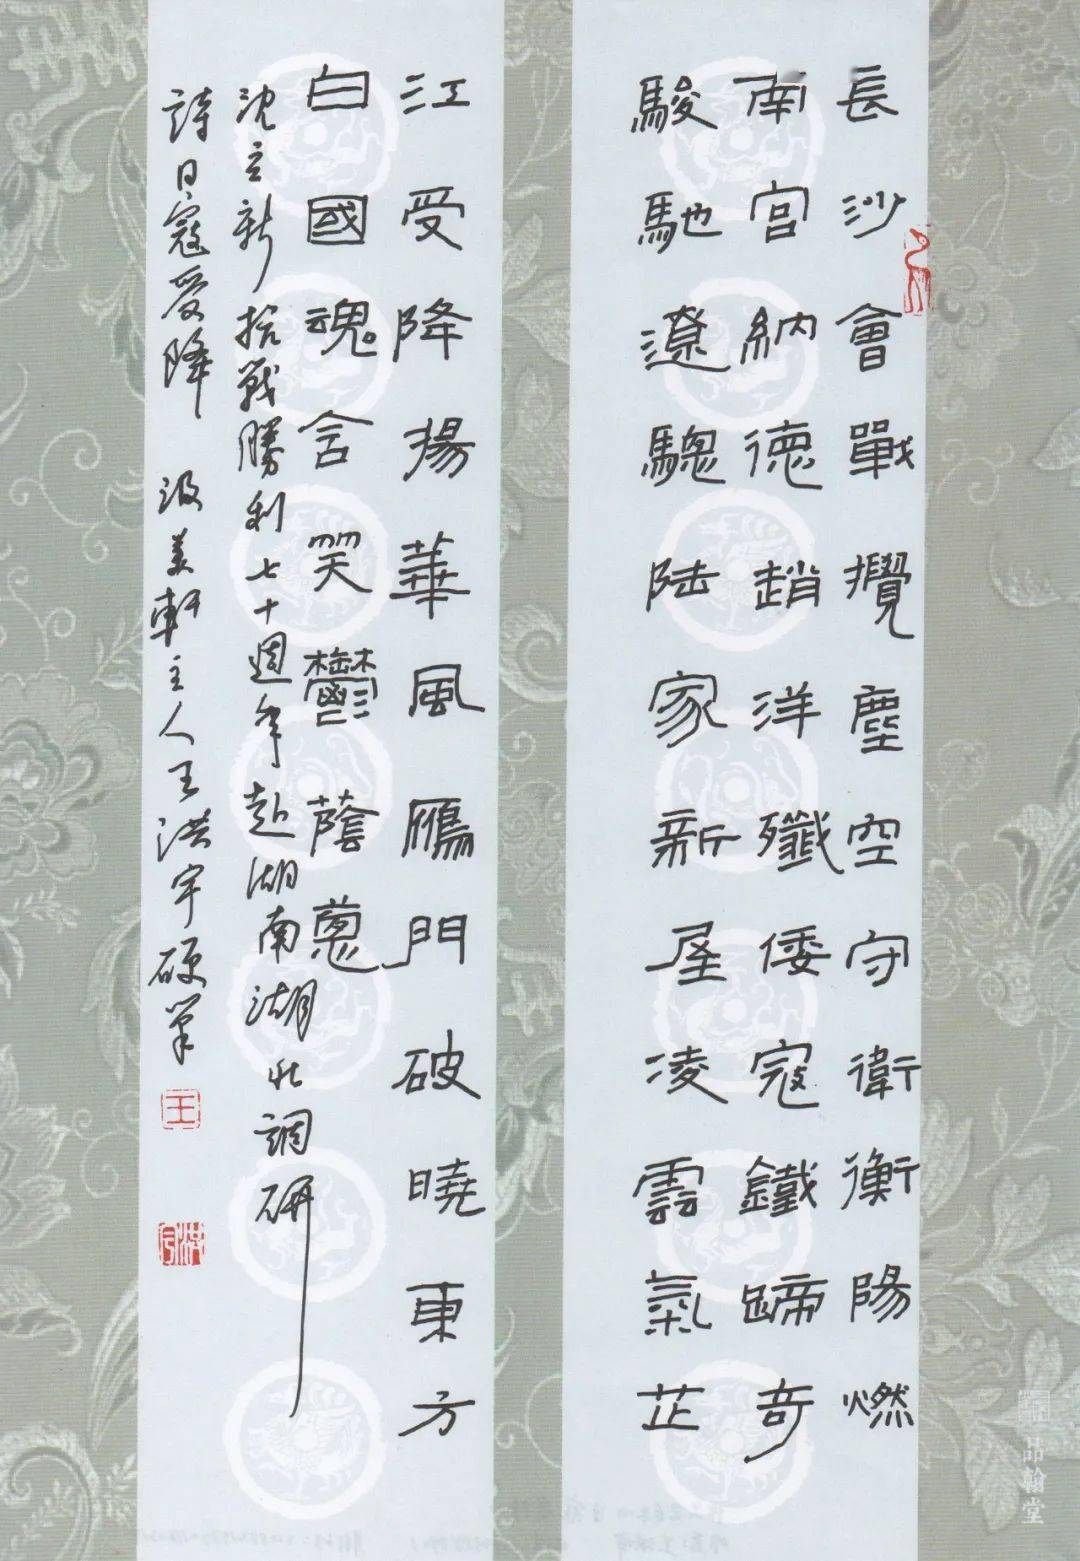 長沙會戰攪塵空守衛衡陽燃
南宫納德趙洋殲倭寇鐵蹄奇
駿馳遼驄陸家新屋凌雲氣芷
江受降揚華風鴈門破曉東方
白國魂含笑鬱蔭蔥
沈立新抗戰勝利七十週年赴湖南湖北調研
詩日寇受降 汲美軒主人王洪宇硬筆
王
品翰堂